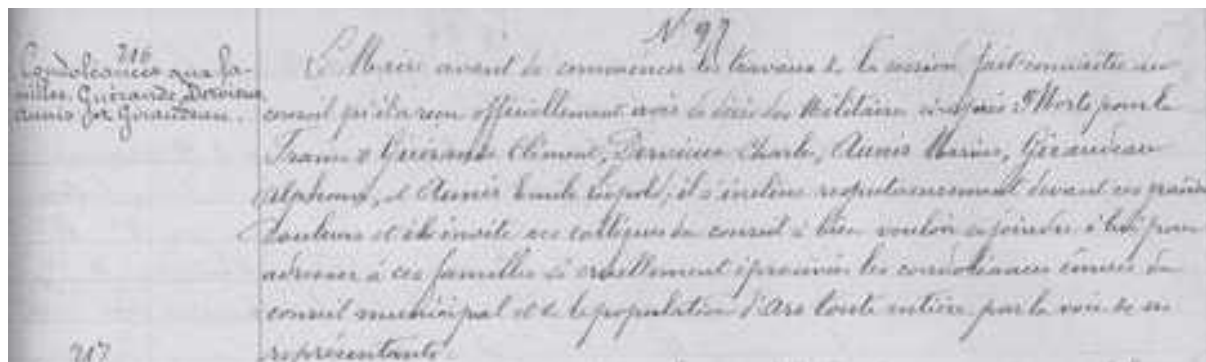 Nº 97
216
Condoléances aux fa-
milles Guérande, Dervieux
Aunis et Géraudeau.
Le Maire avant de commencer les travaux de la session fait connaitre au
conseil qu'il a reçu officiellement avis du décès des Militaires ci-après "Morts pour la
France" Guérande Clément, Dervieux Charles, Aunis Marius, Géraudeau
Alphonse, et Aunis Emile Léopold; il s'incline respectueusement devant ces grandes
douleurs et il invite ses collègues du conseil à bien vouloir se joindre à lui pour
adresser à ces familles si cruellement éprouvées les condoléances émues du
conseil municipal et de la population d'Ars toute entière par la voix de ses
représentants.
217